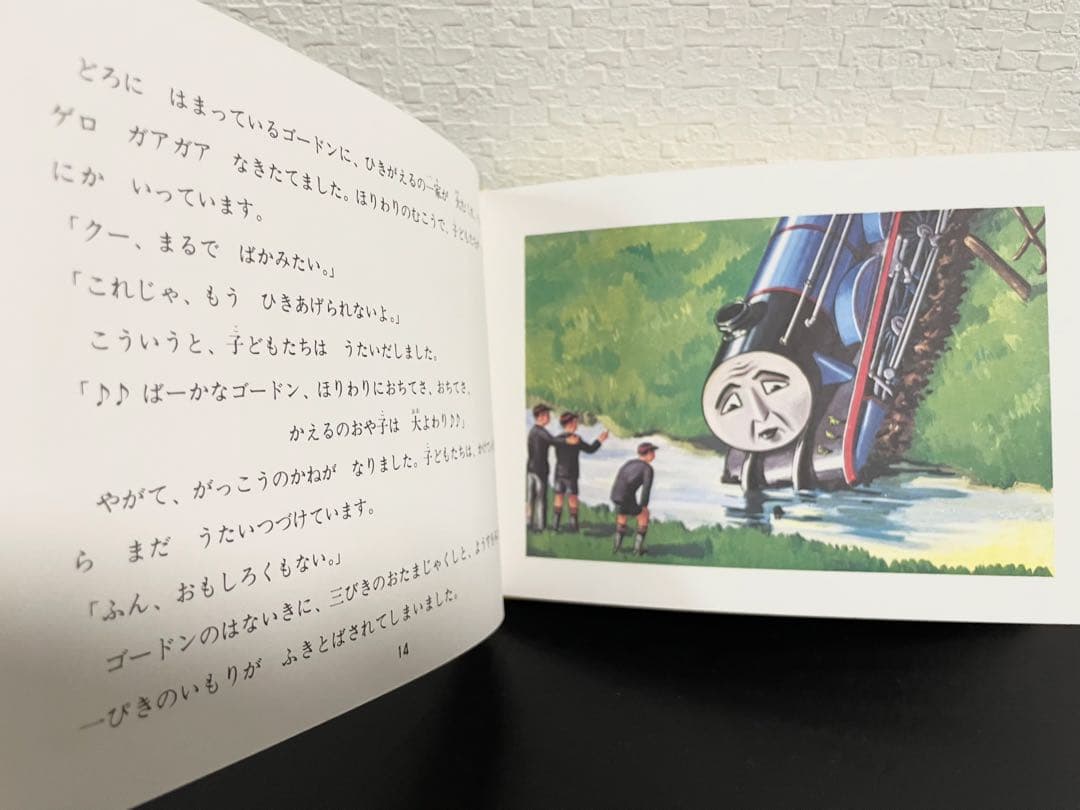 どろに　はまっているゴードンに、ひきがえるの一家が
ゲロ　ガアガア　なきたてました。ほりわりのむこうで、子ども
にか　いっています。
「クー、まるで　ばかみたい。」
「これじゃ、もう　ひきあげられないよ。」
こういうと、子どもたちは　うたいだしました。
「♪♪ ばーかなゴードン、ほりわりにおちてさ、おちてさ、
かえるのおや子は　大よわり♪♪」
やがて、がっこうのかねが　なりました。子どもたちは、
ら　まだ　うたいつづけています。
「ふん、おもしろくもない。」
ゴードンのはないきに、三びきのおたまじゃくしと、
一ぴきのいもりが　ふきとばされてしまいました。
14